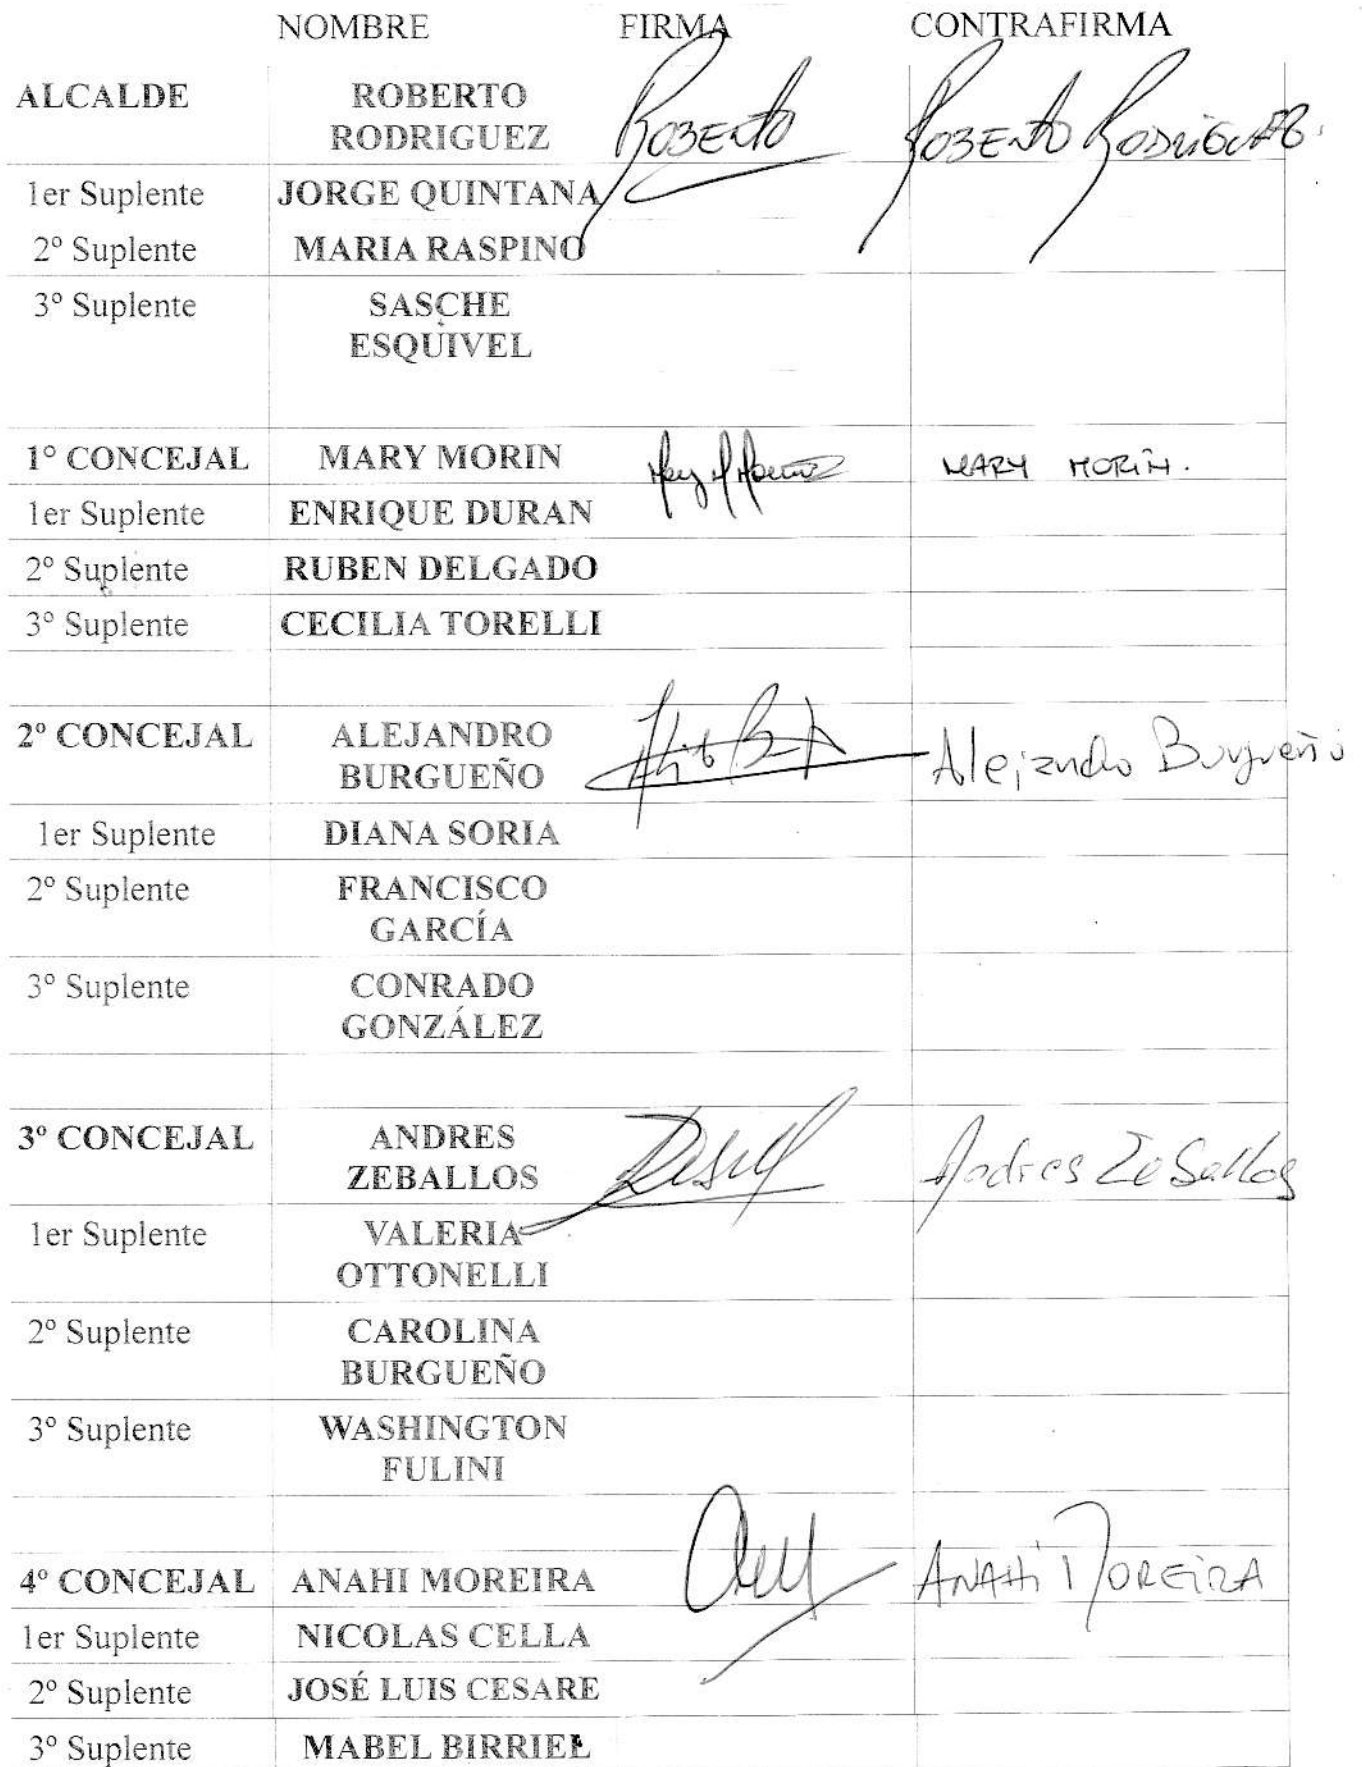 NOMBRE FIRMA CONTRAFIRMA
ALCALDE ROBERTO RODRIGUEZ Roberto Roberto Rodriguez.
1er Suplente JORGE QUINTANA
2º Suplente MARIA RASPINO
3º Suplente SASCHE
ESQUIVEL
1º CONCEJAL MARY MORIN MARY MORIN.
1er Suplente ENRIQUE DURAN
2º Suplente RUBEN DELGADO
3º Suplente CECILIA TORELLI
2º CONCEJAL ALEJANDRO
BURGUEÑO Alejandro Burgueño
1er Suplente DIANA SORIA
2º Suplente FRANCISCO
GARCÍA
3º Suplente CONRADO
GONZÁLEZ
3º CONCEJAL ANDRES
ZEBALLOS Andres Zeballos
1er Suplente VALERIA
OTTONELLI
2º Suplente CAROLINA
BURGUEÑO
3º Suplente WASHINGTON
FULINI
4º CONCEJAL ANAHI MOREIRA ANAHi MOREiRA
1er Suplente NICOLAS CELLA
2º Suplente JOSÉ LUIS CESARE
3º Suplente MABEL BIRRIEL